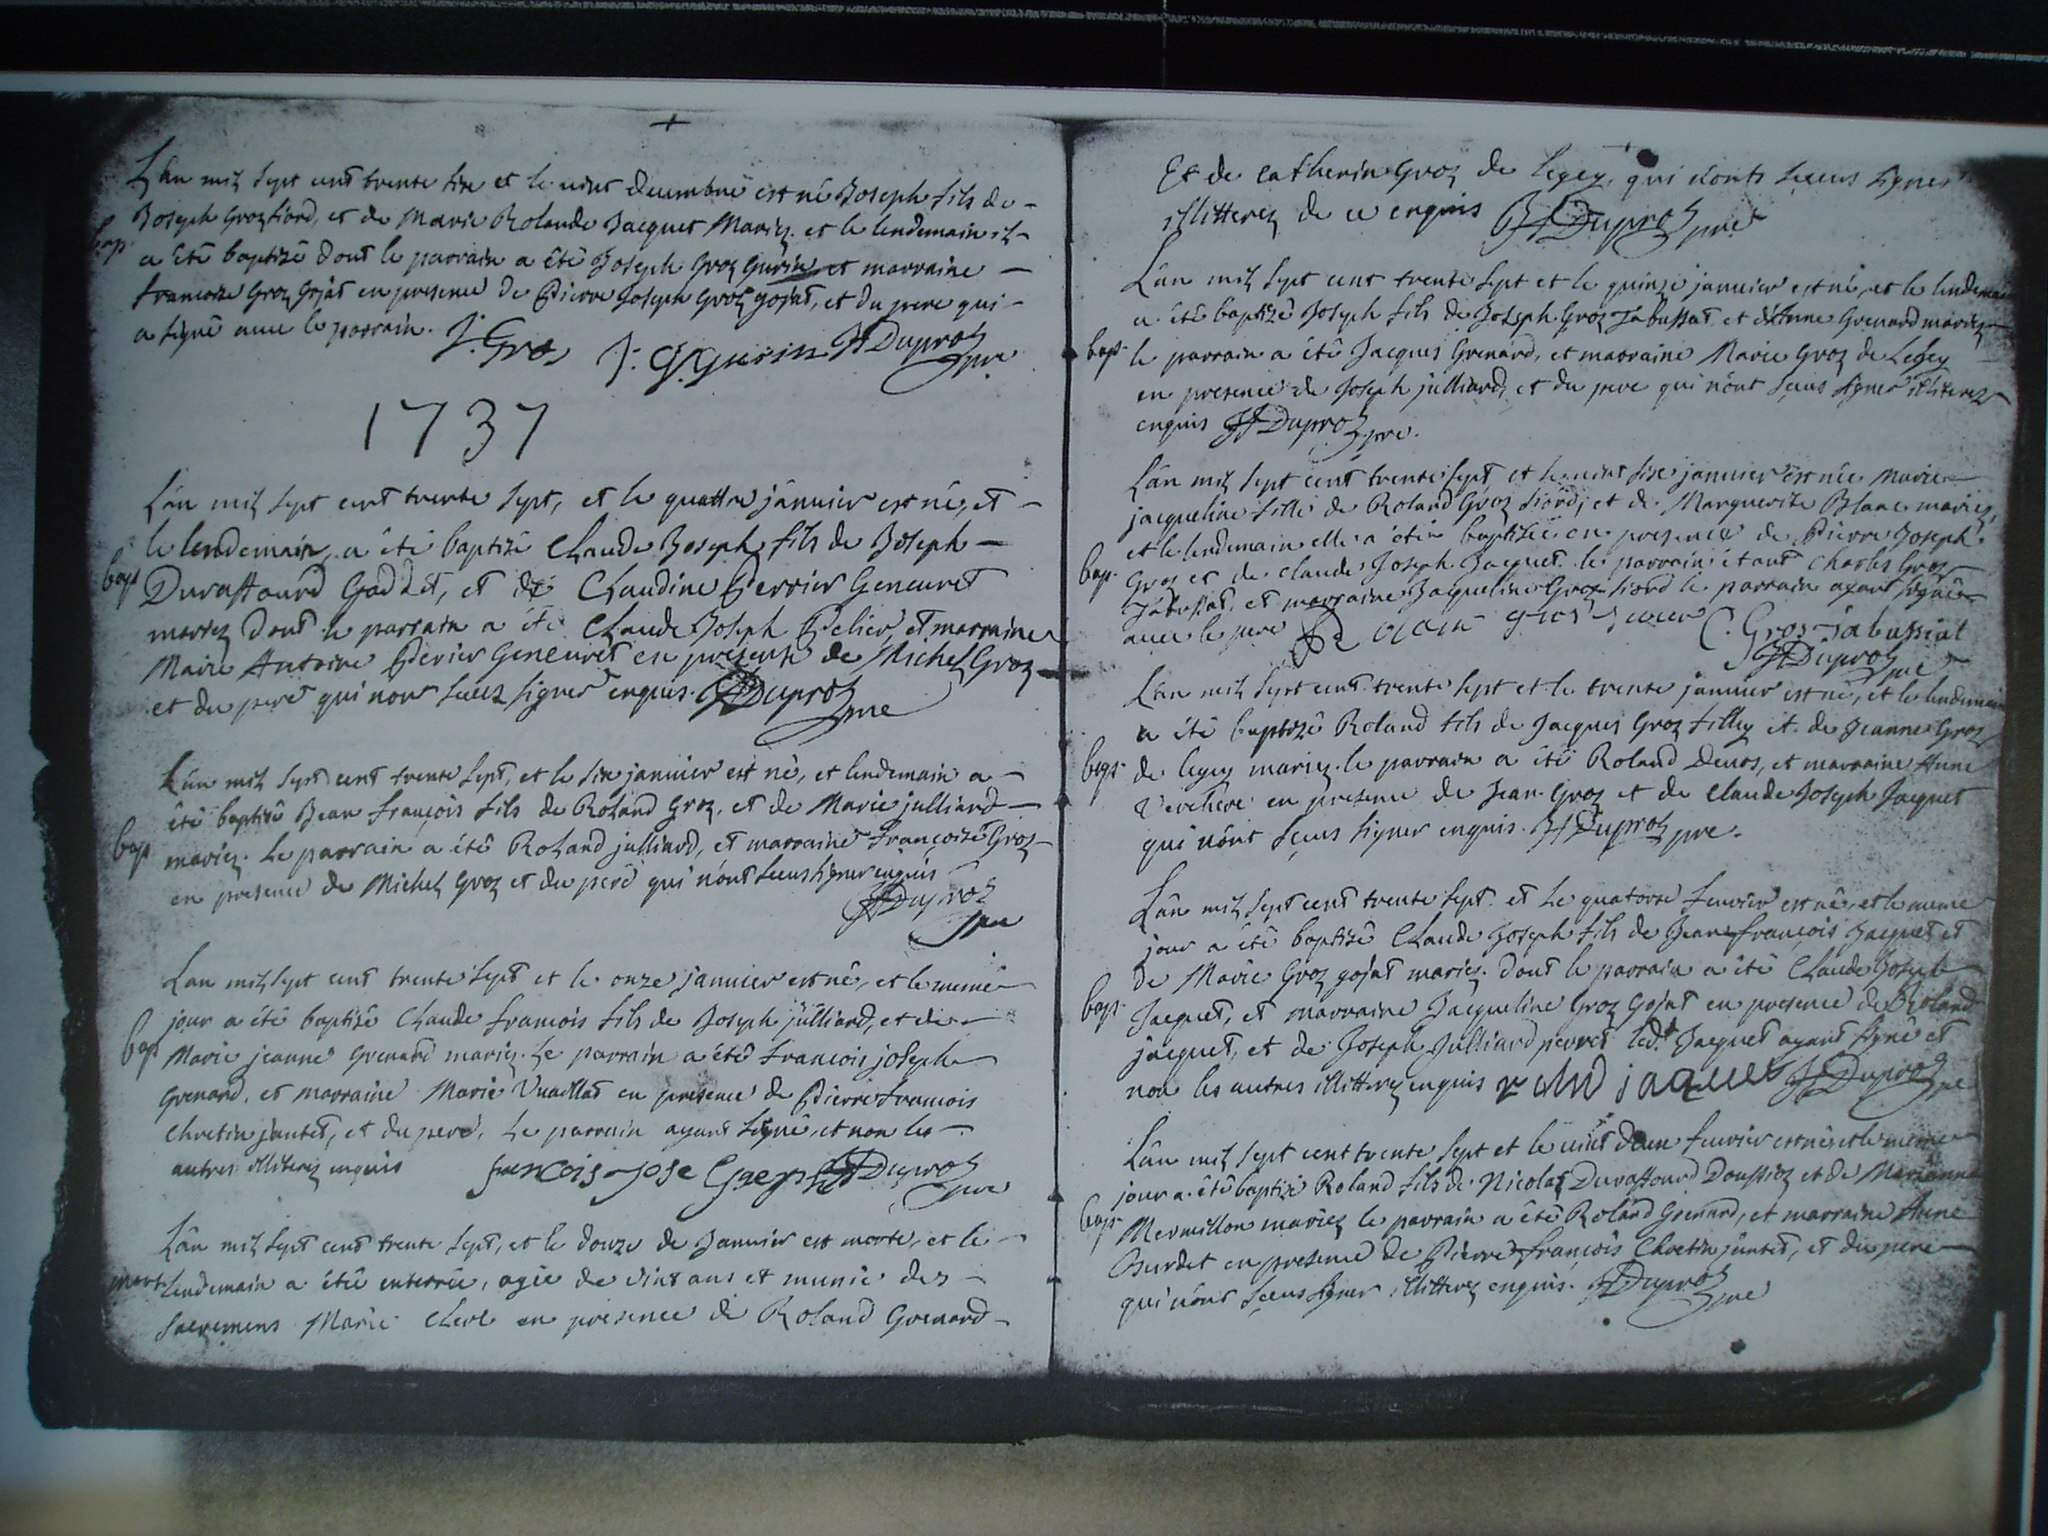 L'an mil sept cent trente six et le vint decembre est né Joseph fils de
Joseph Groz fiord, et de Marie Rolande Jacquet Mariez. et le lendemain il
bap. a été baptizé dont le parrain a été Joseph Groz Gurin et marraine
francoise Groz Gojat en presence de Pierre Joseph Groz gojat, et du pere qui
a signé avec le parrain. J. Gros J. G. gurin Duproz pre
1737
L'an mil sept cent trente sept, et le quattre janvier est né, et
le lendemain a été baptizé Claude Joseph fils de Joseph
bap Duraffourd Goddet, et de Claudine Perrier Geneuret
mariez dont le parrain a été Claude Joseph Pelier et marraine
Marie Antoine Perier Geneuret en presence de Michel Groz
et du pere qui nont sceus signer enquis. Duproz pre
L'an mil sept cent trente sept, et le six janvier est né, et lendemain a
été baptizé Jean françois fils de Roland Groz, et de Marie julliard
bap mariez. Le parrain a été Roland julliard, et marraine françoise Groz
en presence de Michel Groz et du pere qui n'ont sceus signer enquis
Duproz
pre
L'an mil sept cent trente sept et le onze janvier est né, et le meme
jour a été baptisé Claude francois fils de Joseph julliard, et de
bap Marie jeanne Grenard mariez. Le parrain a été francois joseph
Grenard, et marraine Marie Vuaillat en presence de Pierre francois
Chretin jantet, et du pere, Le parrain ayant signé, et non les
autres illiterez enquis francois jose Duproz
pre
L'an mil sept cent trente sept, et le douze de Janvier est morte, et le
mort lendemain a été enterrée, agée de vint ans et munie des
sacremens Marie en presence de Roland Grenard
Et de Catherin Groz de legey, qui n'onts sceus signer
illitterez de ce enquis Duproz pre
L'an mil sept cent trente sept et le quinze janvier est né, et le lendemain
a été baptizé Joseph fils de Joseph Groz Jabussat et d'Anne Grenard mariez
bap. le parrain a été Jacques Grenard, et marraine Marie Groz de Legey
en presence de Joseph julliard, et du pere qui n'ont sceus signer illiterez
enquis Duproz pre.
L'an mil sept cent trente sept, et le vint six janvier est née Marie
jacqueline fille de Roland Groz fiord, et de Marguerite Blanc mariez,
et le lendemain elle a été baptisée en presence de Pierre Joseph
bap. Groz et de Claude Joseph Jacquet. le parrain étant Charles Groz
Jabussat, et marraine Jacqueline Groz fiord le parrain ayant signé
avec le pere C. Gros jabussiat
Duproz pre
L'an mil sept cent trente sept et le trente janvier est né, et le lendemain
a été baptizé Roland fils de Jacques Groz fillez et de Jeanne Groz
bap. de legey mariez. le parrain a été Roland Devos, et marraine Anne
en presence de Jean Groz et de Claude Joseph Jacquet
qui n'ont sceus signer enquis. Duproz pre.
L'an mil sept cent trente sept. et le quatorse fevrier est né, et le meme
jour a été baptisé Claude Joseph fils de Jean françois Jacquet et
de Marie Groz gojat mariez. dont le parrain a été Claude Joseph
bap. Jacquet, et marraine Jacqueline Groz Gojat en presence de Roland
jacquet, et de Joseph Julliard perret led.t Jacquet ayant signé et
non les autres illitterez enquis jaquet Duproz pre
L'an mil sept cent trente sept et le vint deux fevrier est né, et le meme
jour a été baptizé Roland fils de Nicolas Duraffourd Doussioz et de Marianne
bap. Mermillon mariez le parrain a été Roland Grenard, et marraine Anne
Burdet en presence de Pierre françois Chretin jantet, et du pere
qui n'ont sceus signer illitterez enquis. Duproz pre